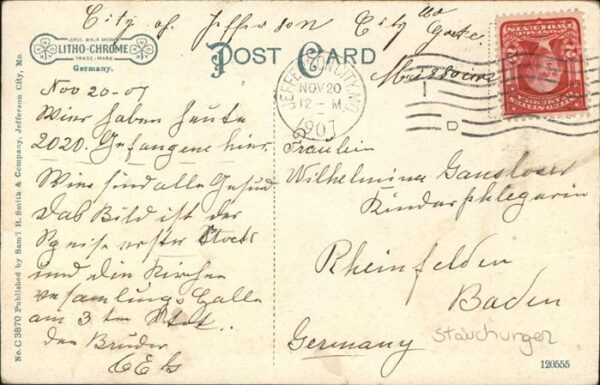 City of Jefferson City
State
Missouri
LEIPZIG BERLIN DRESDEN
LITHO-CHROME
TRADE-MARK
Germany.
POST CARD
JEFFERSON CITY, MO.
NOV 20
12 - M
1907
Nov 20 - 07
Wier haben heute
2020. Gefangene hier.
Wier sind alle Gesund
Das Bild ist der
Speise erster Stock
und die Kirchen
versamlungs Halle
am 3 ten Stok.
den Bruder
Fraulein
Wilhelmina
Kinderphlegerin
Rheinfelden
Baden
Germany
120555
No. C 3870 Published by Sam'l H. Smith & Company, Jefferson City, Mo.